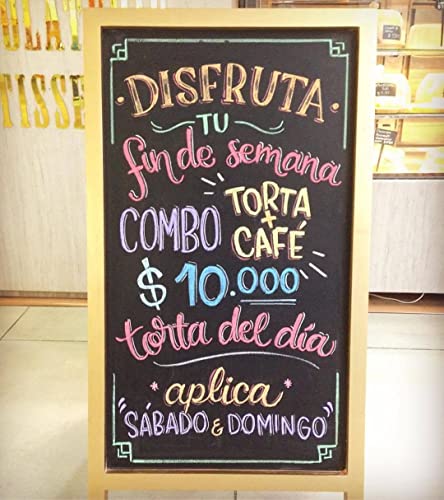 DISFRUTA
TU
fin de semana
COMBO TORTA + CAFÉ
$ 10.000
torta del día
*aplica*
"SÁBADO & DOMINGO"